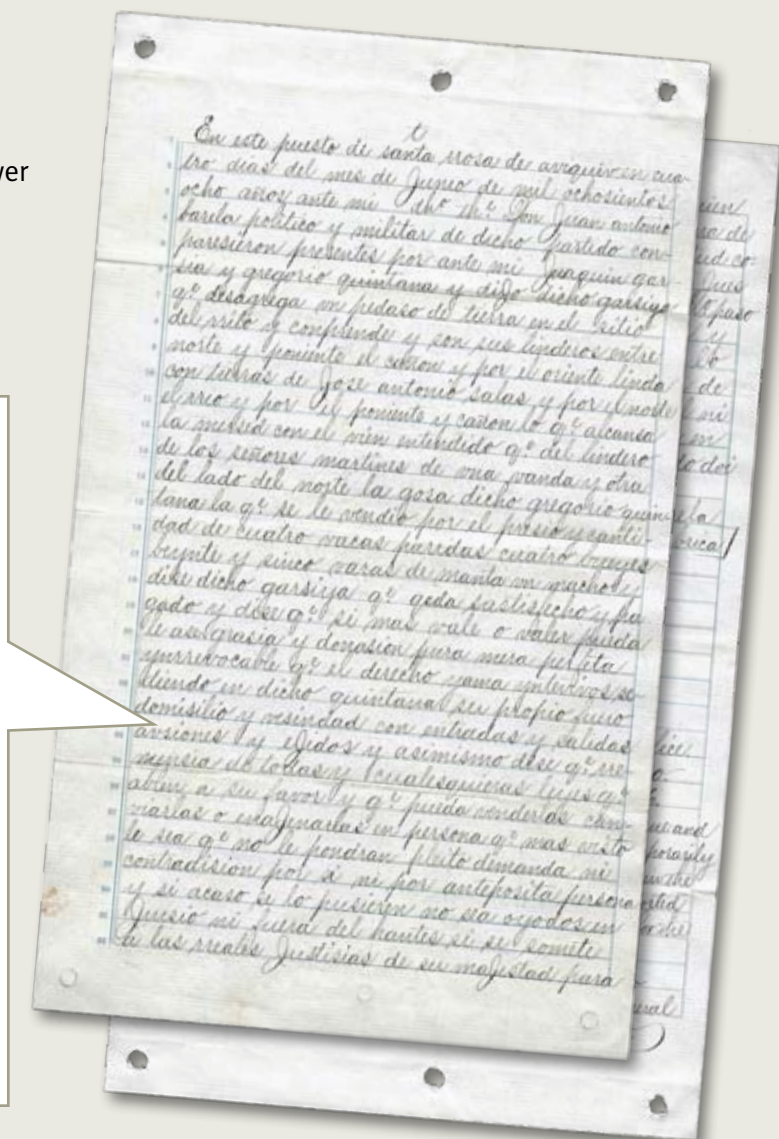 yer
t
En este puesto de santa rrosa de aviquiu en cua-
tro dias del mes de Junio de mil ochosientos
ocho años ante mi dho thᵉ Don Juan antonio
barela politico y militar de dicho partido con-
paresieron presentes por ante mi Joaquin gar-
sia y gregorio quintana y digo dicho garsiya
qᵉ desagrega un pedaso de tierra en el sitio
del rrito y conprende y son sus linderos entre
norte y poniente el cañon y por el oriente linda
con tierras de Jose antonio salas y por el norte
el rreo y por el poniente y cañon lo qᵉ alcansa
la mersed con el vien entendido qᵉ del lindero
de los señores martines de una vanda y otra
del lado del norte la gosa dicho gregorio quin-
tana la qᵉ se le vendio por el presio y canti-
dad de cuatro vacas paredas cuatro bueyes
beynte y sinco varas de manta un macho y
dise dicho garsiya qᵉ qeda sastisfecho y pa
gado y dise qᵉ si mas vale o valer pueda
le ase grasia y donasion pura mera perfeta
ynrrevocable qᵉ el derecho yama yntervivos se
diendo en dicho quintana su propio fuero
domisilio y vesindad con entradas y salidas
avsiones y eJidos y asimismo dise qᵉ rre
nunsia de todas y cualesquieras leyes qᵉ
ablen a su favor y qᵉ pueda venderlas can-
viarlas o enaJenarlas en persona qᵉ mas visto
le sea qᵉ no le pondran pleito demanda ni
contradision por si ni por anteposita persona
y si acaso se lo pusieren no sea oyodos en
Juisio ni fuera del hantes si se somete
a las rreales Justisias de su maJestad para
cien
ra de
ud co-
ques
paso
y
lo
de
ni
un
to doi
efa
rica
lice
o.
ue and
porarily
in the
sted
for the
neral